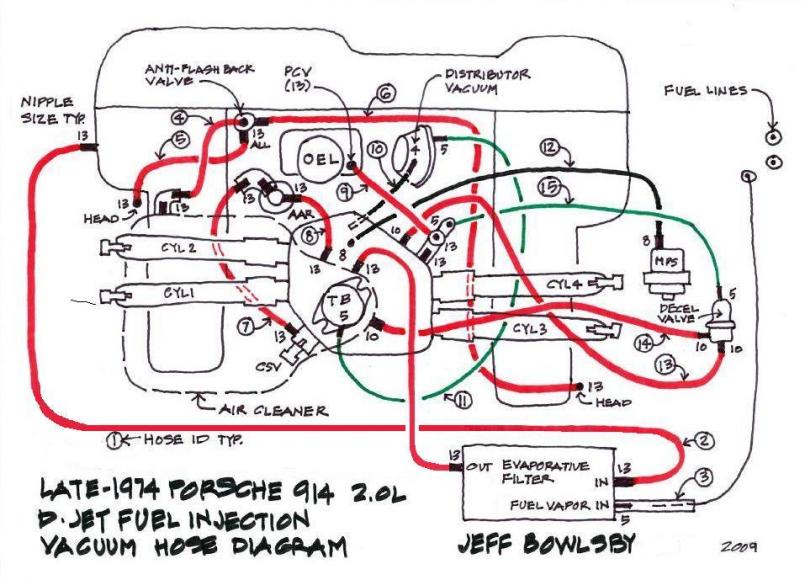 ANTI-FLASHBACK
VALVE
PCV
(13)
6
DISTRIBUTOR
VACUUM
FUEL LINES
NIPPLE
SIZE TYP.
13
4
5
13
ALL
OEL
10
5
12
15
9
13
HEAD
13
13
13
AAR
8
13
8
13
10
5
13
8
MPS
CYL 2
CYL 1
CYL 4
CYL 3
TB
5
10
DECEL
VALVE
5
10
10
14
13
7
13
CSV
11
13
HEAD
AIR CLEANER
1 HOSE ID TYP.
2
3
13
OUT
EVAPORATIVE
FILTER
13
IN
FUEL VAPOR IN
5
LATE-1974 PORSCHE 914 2.0L
D-JET FUEL INJECTION
VACUUM HOSE DIAGRAM
JEFF BOWLSBY
2009